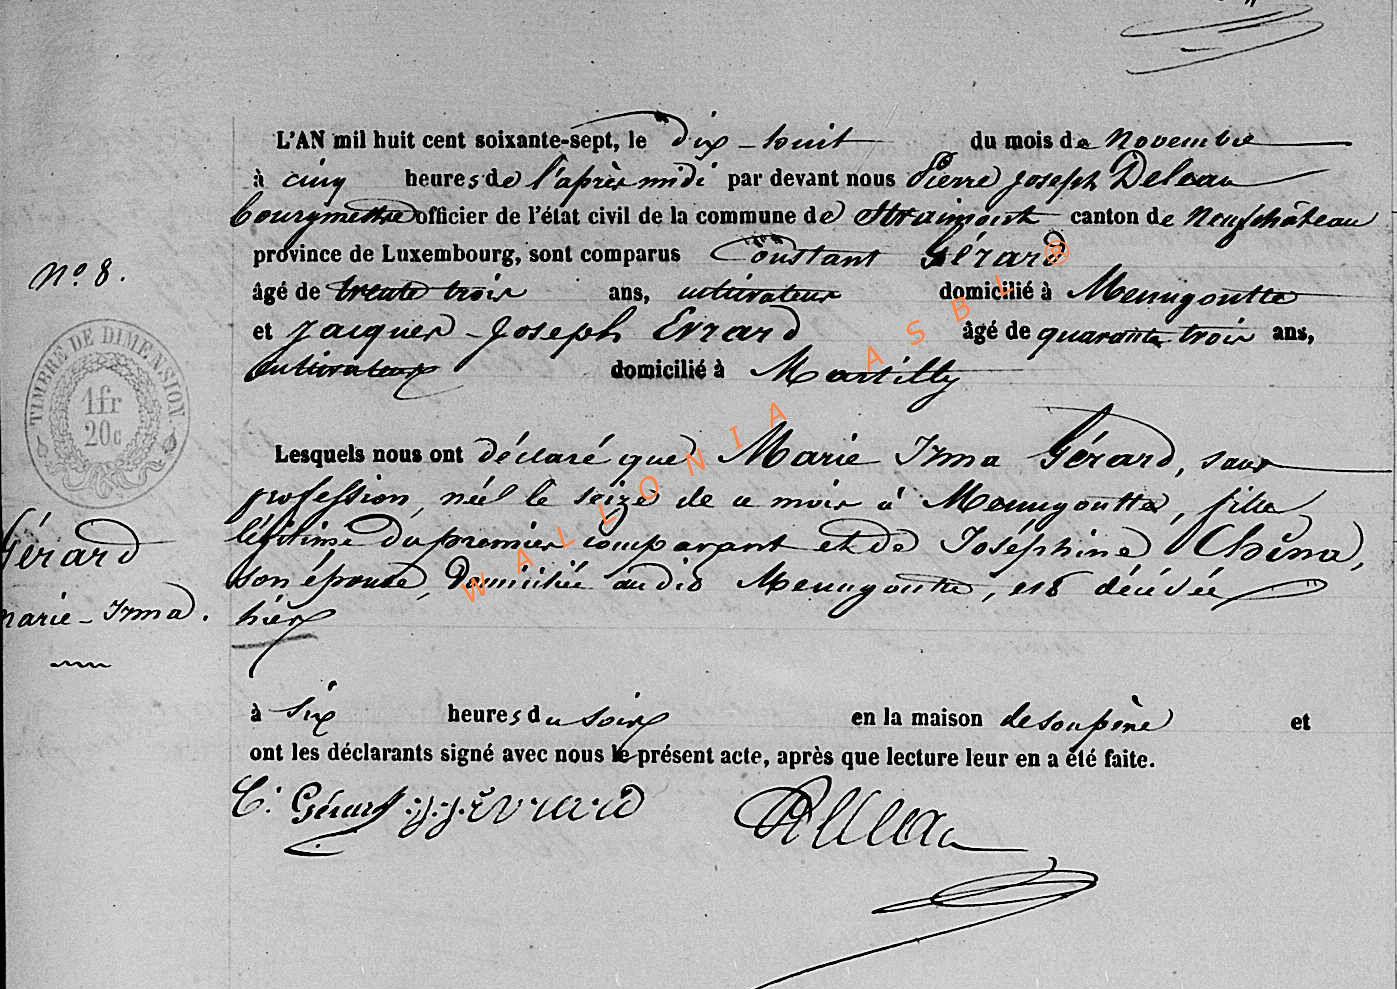 L'AN mil huit cent soixante-sept, le dix-huit du mois de Novembre
à cinq heures de l'après midi par devant nous Pierre Joseph Deleau
bourgmestre officier de l'état civil de la commune de Straimont canton de Neufchâteau
province de Luxembourg, sont comparus Constant Gérard
âgé de trente trois ans, cultivateur domicilié à Menugoutte
et Jacques-Joseph Evrard âgé de quarante trois ans,
cultivateur domicilié à Martilly
Nº 8.
TIMBRE DE DIMENSION
1fr
20c
Lesquels nous ont déclaré que Marie Irma Gérard, sans
profession, née le seize de ce mois à Menugoutte, fille
légitime du premier comparant et de Joséphine China,
son épouse, domiciliée audit Menugoutte, est décédée
hier
Gérard
marie-Irma.
à six heures du soir en la maison de son père et
ont les déclarants signé avec nous le présent acte, après que lecture leur en a été faite.
C. Gérard J.J. Evrard Deleau
WALLONIA ASBL ®